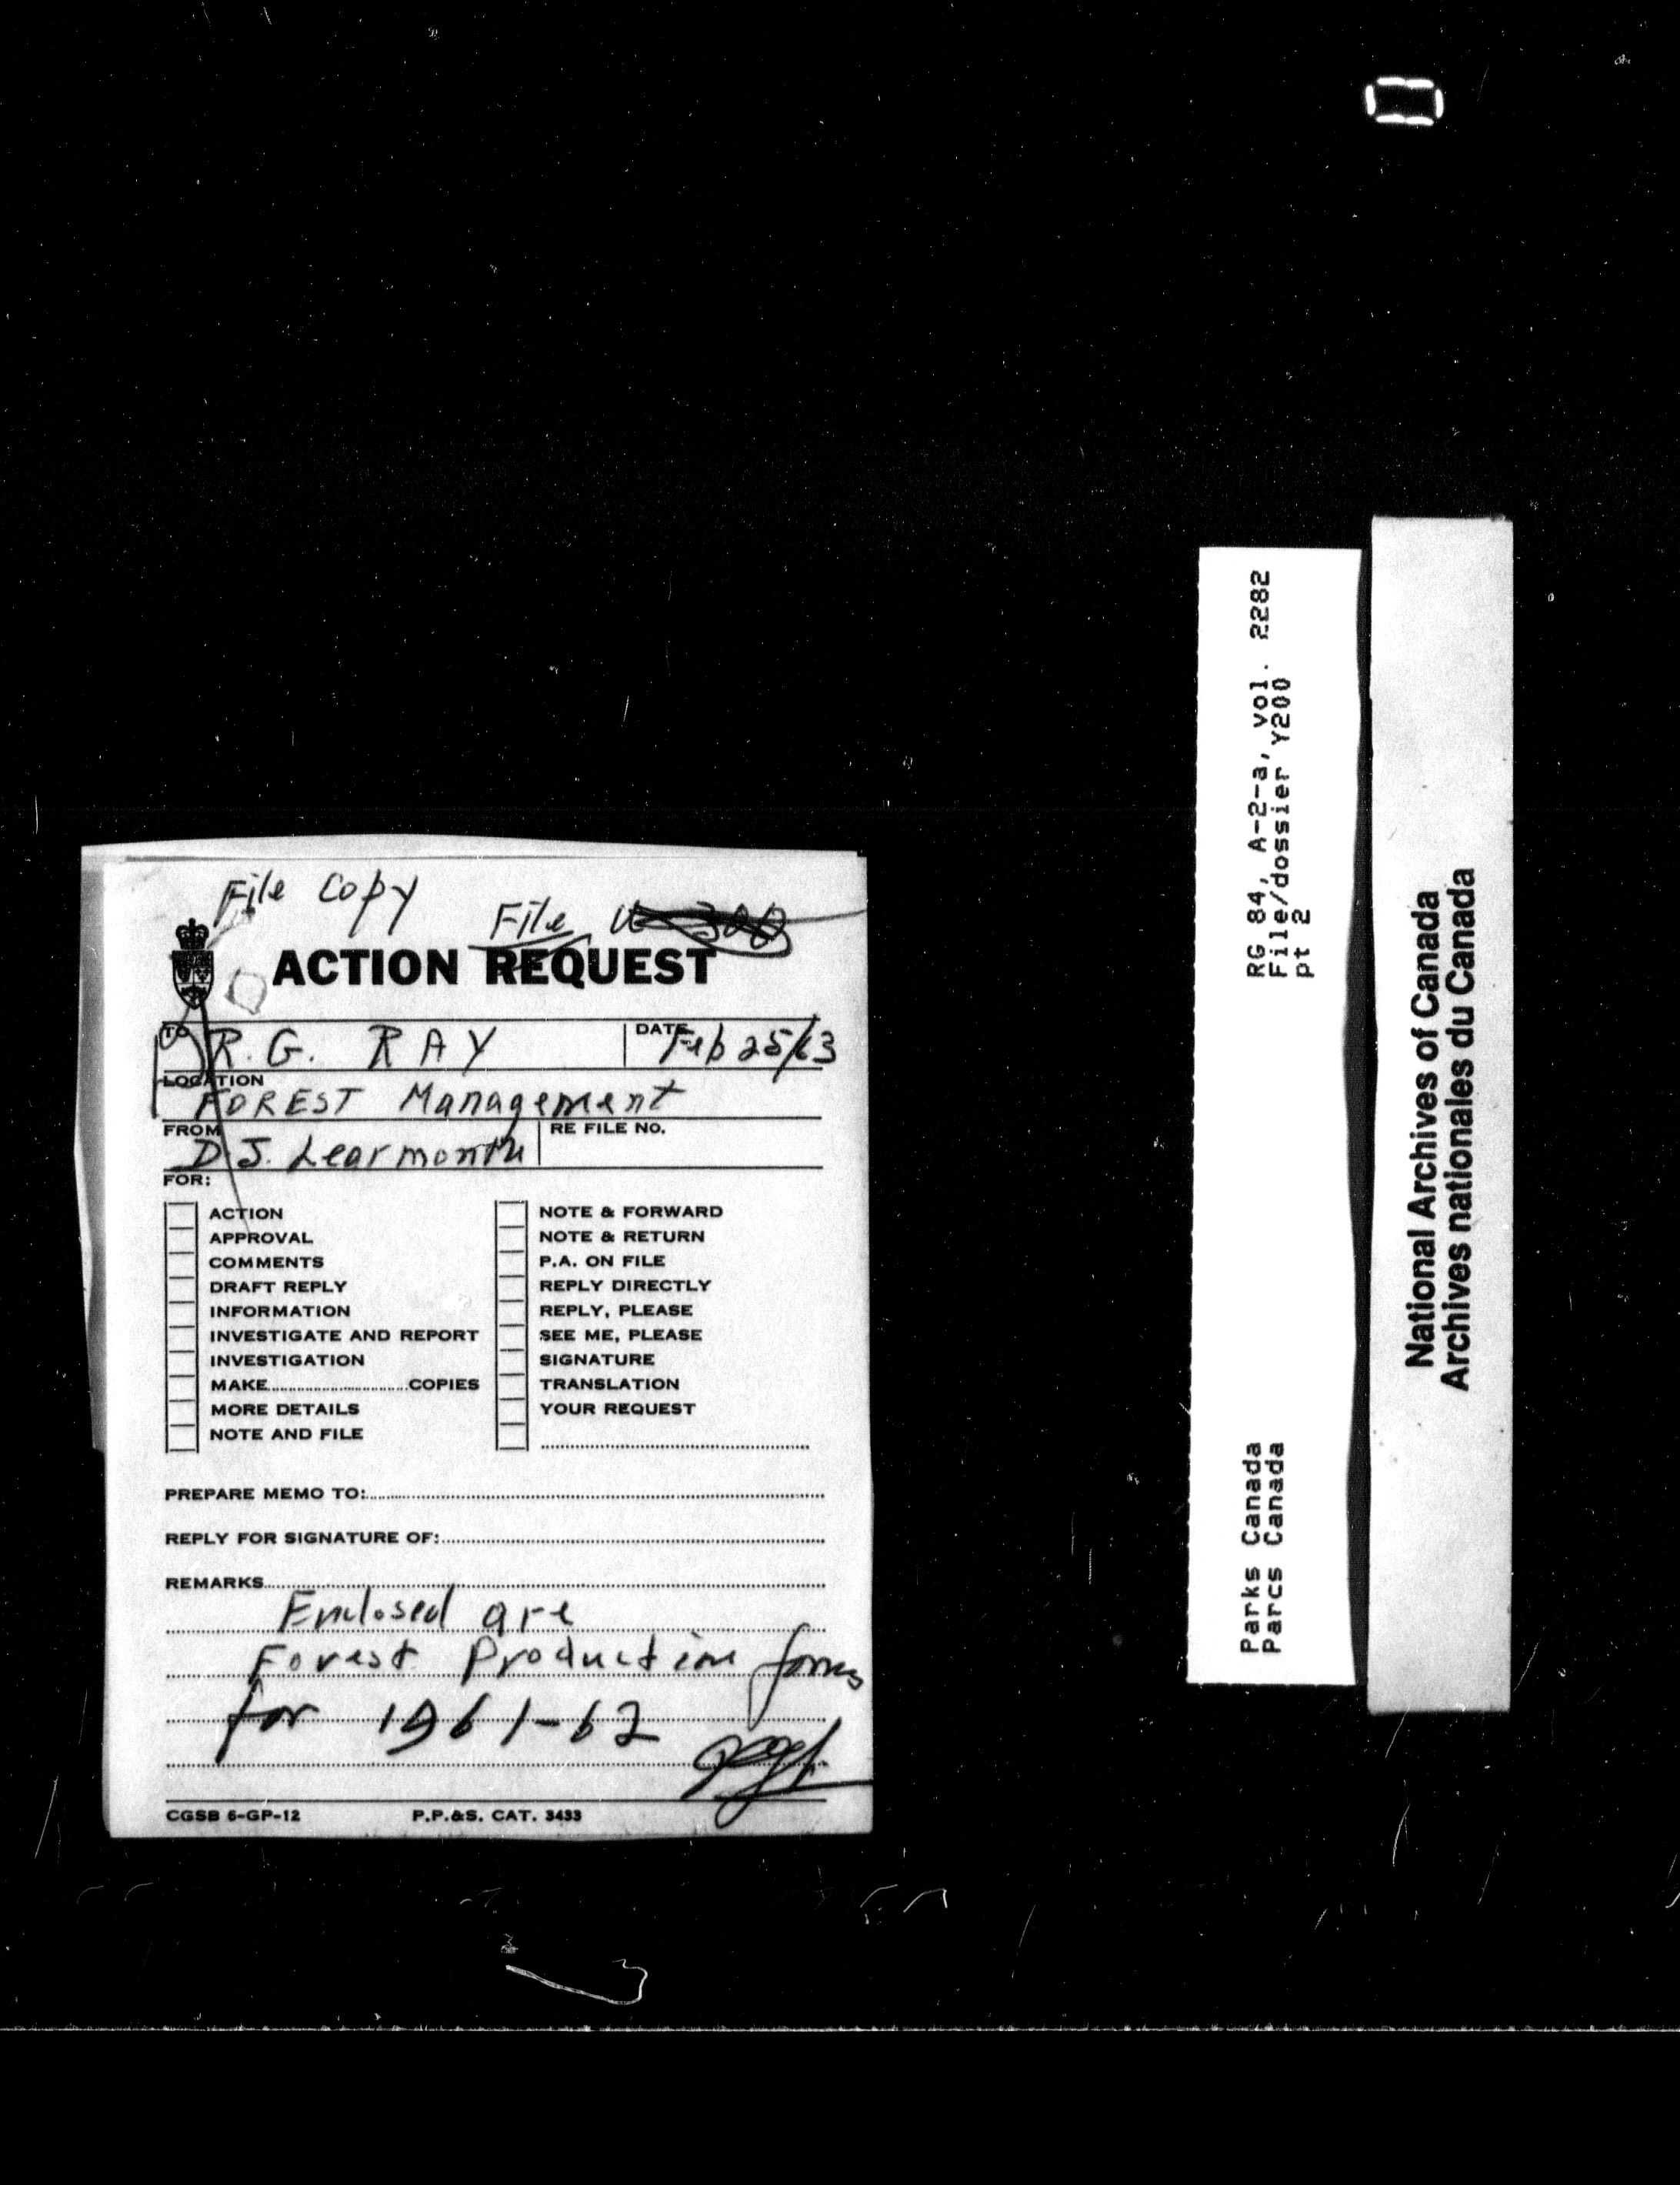 File Copy
File
ACTION REQUEST
TO R.G. RAY DATE Feb 25/63
LOCATION
FOREST Management
FROM RE FILE NO.
D.J. Learmonth
FOR:
ACTION
APPROVAL
COMMENTS
DRAFT REPLY
INFORMATION
INVESTIGATE AND REPORT
INVESTIGATION
MAKE............................COPIES
MORE DETAILS
NOTE AND FILE
NOTE & FORWARD
NOTE & RETURN
P.A. ON FILE
REPLY DIRECTLY
REPLY, PLEASE
SEE ME, PLEASE
SIGNATURE
TRANSLATION
YOUR REQUEST
PREPARE MEMO TO:
REPLY FOR SIGNATURE OF:
REMARKS
Enclosed are
Forest Production forms
for 1961-62
CGSB 6-GP-12 P.P.&S. CAT. 3433
RG 84, A-2-a, vol. 2282
File/dossier Y200
pt 2
Parks Canada
Parcs Canada
National Archives of Canada
Archives nationales du Canada